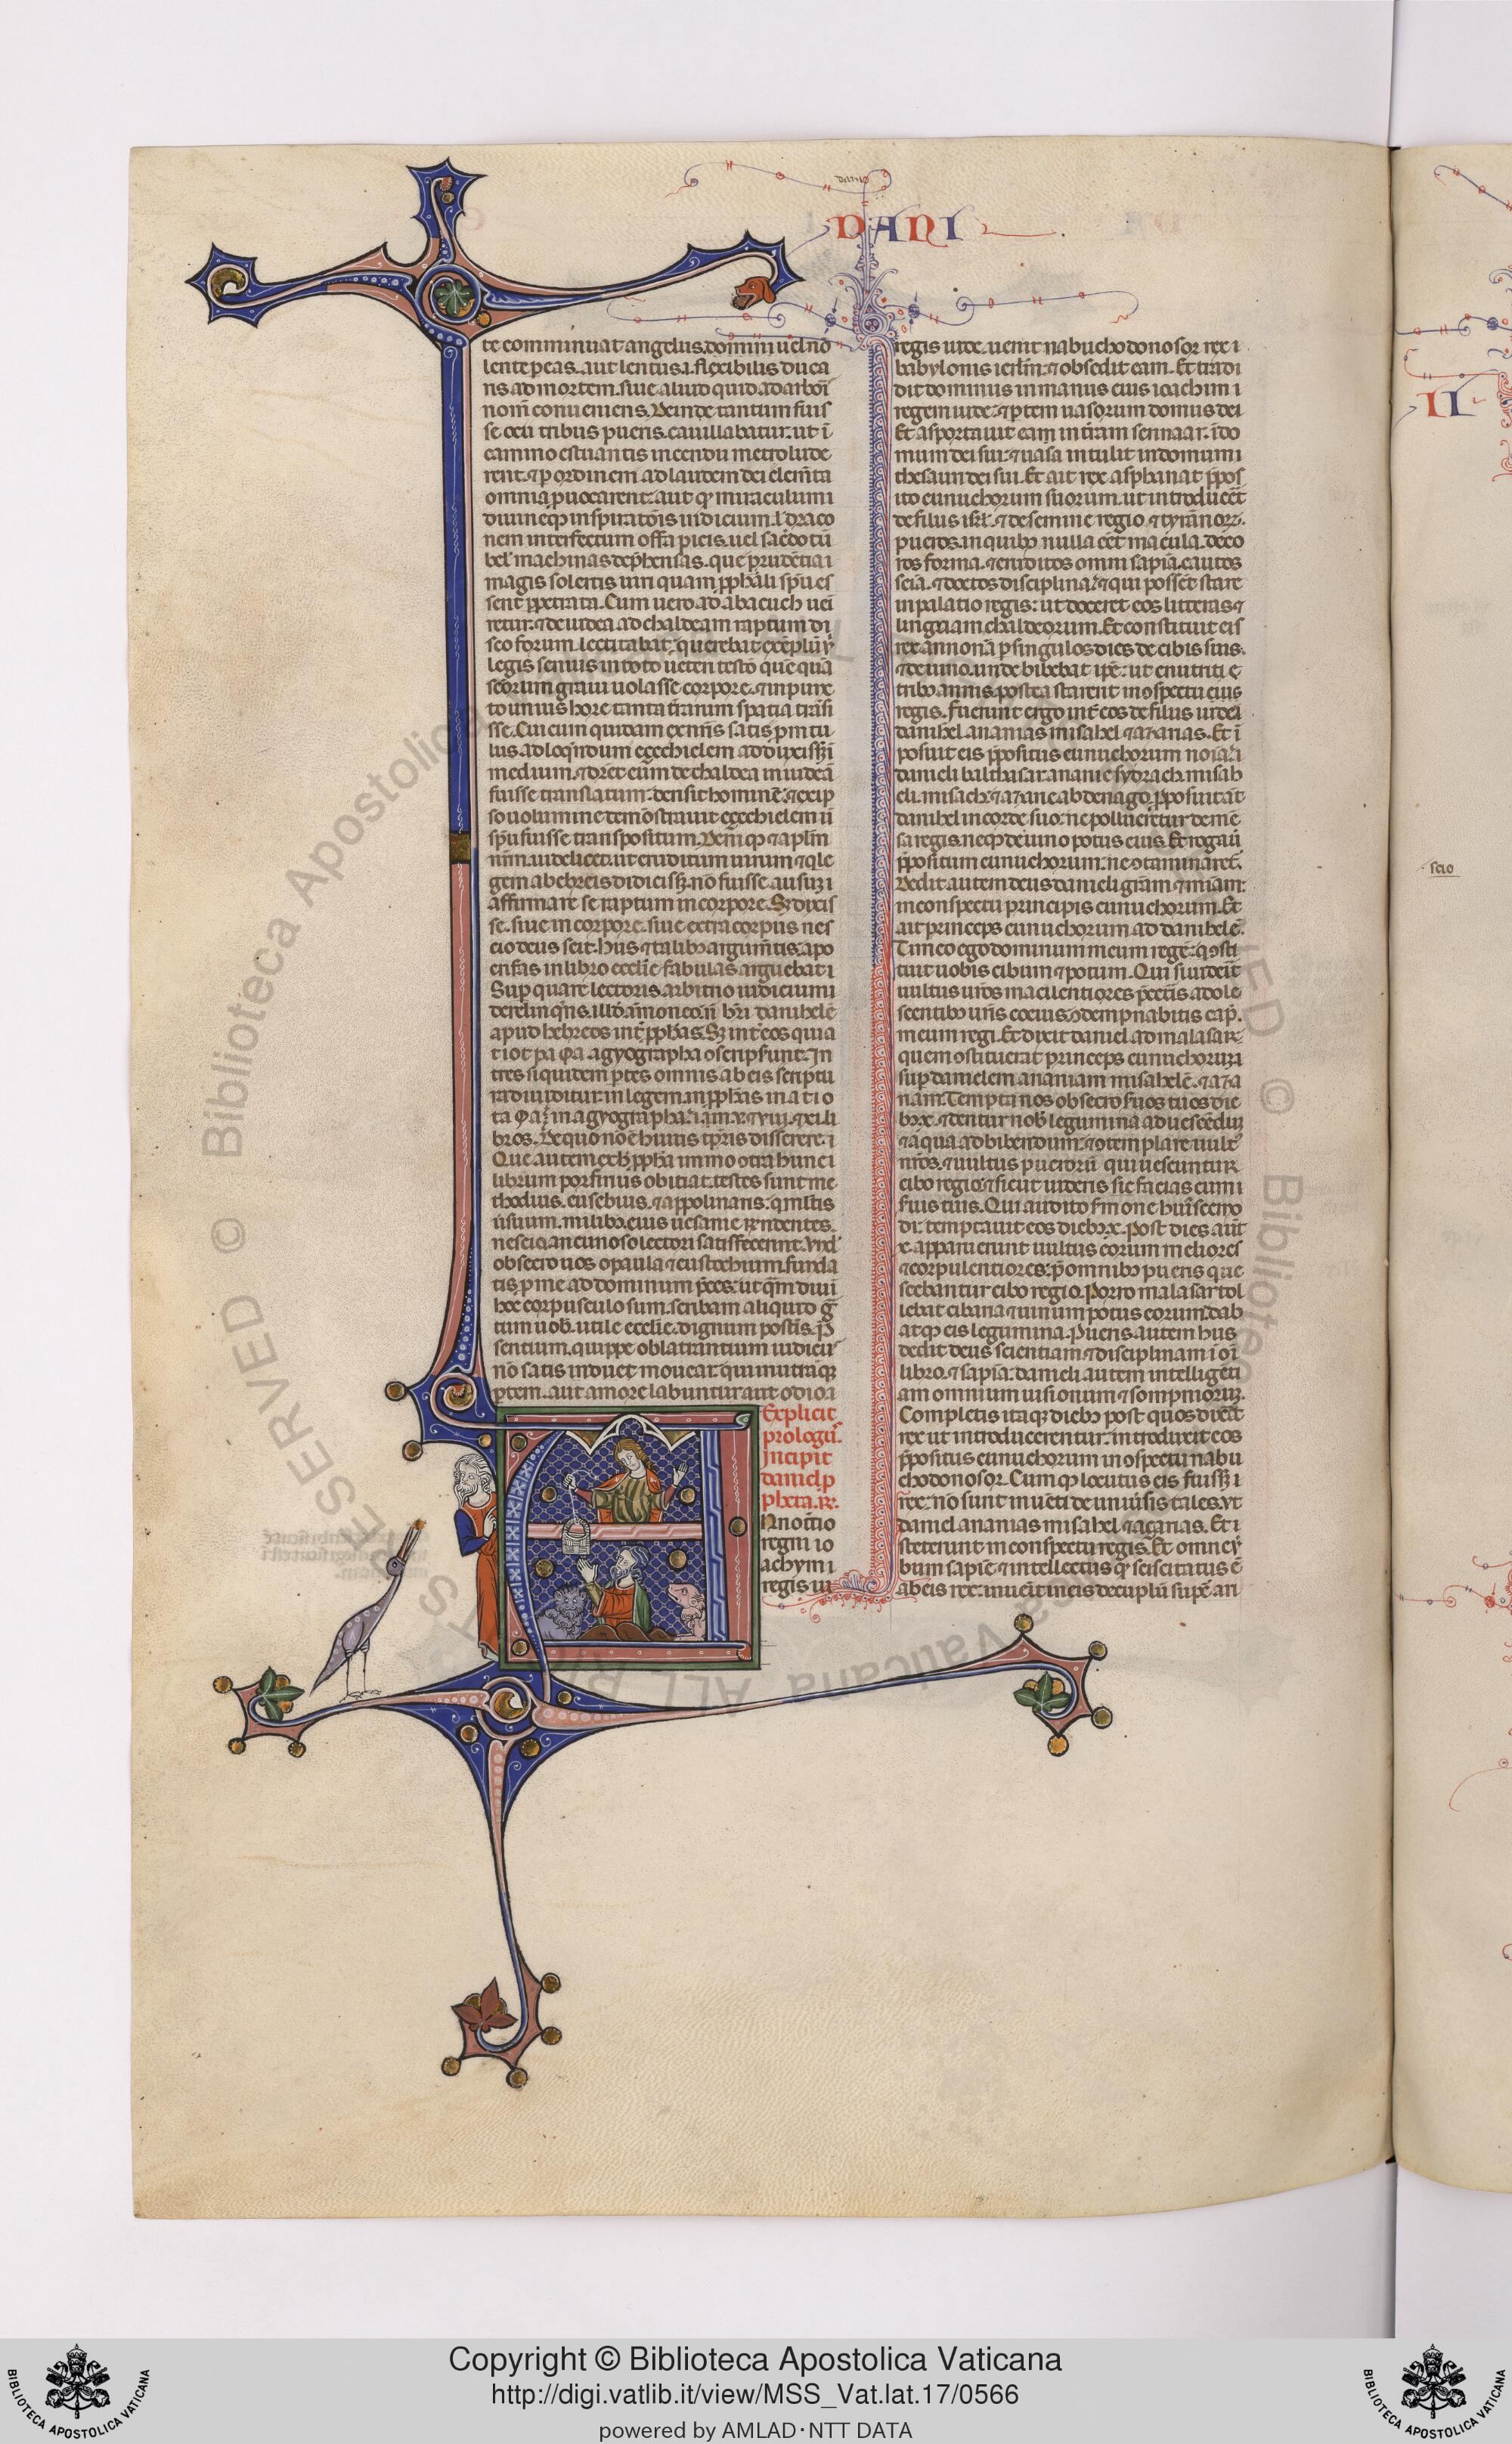 daniel
DANI
te comminuat angelus domini uel no
lente peas. aut lentus .i. flexibilis duca
ris ad mortem. siue aliud quid ad arboꝝ
nom̄ conueniens. Deinde tantum fuis
se ocii tribus pueris. cauillabatur. ut ī
camino estuantis incendii metro lude
rent. ⁊ p ordinem ad laudem dei elem̄ta
omnia puocarent. aut qͥ miraculum
diuineqꝫ inspiratōis iudicium. l̓ draco
nem interfectum offa picis. uel sac̓dotū
bel̓ machinas dep̄hensas. que prudētia
magis solertis uiri quam p̱phāli sp̄u es
sent ppetrata. Cum uero ad abacuch uēi
retur. ⁊ de iudea ad chaldeam raptum di
scoforum lectitabat. querebat exēplū
legis senuis in toto ueteri testō que quā
scōrum graui uolasse corpore. ⁊ in punc
to unius hore tanta t̓rarum spatia trāsi
sse. Cui cum quidam ex nr̄is satis prōtu
lus ad loq̄ndum ezechielem adduxissꝫ ī
medium. ⁊ dr̄et eūm de chaldea in iudeā
fuisse translatum. derisit hominē. ⁊ ex ip
so uolumine demōstrauit ezechielem ī
sp̄u fuisse transpositum. Deniqꝫ ⁊ apl̄m
nr̄m. uidelicet ut eruditum uirum ⁊ q̄ le
gem ab hebreis didicissꝫ. nō fuisse ausuꝫ
affirmare se raptum in corpore. Sꝫ dixis
se. siue in corpore. siue extra corpus nes
cio deus scit. His ⁊ talibꝫ argum̄tis. apo
crifas in libro ecclīe fabulas arguebat
Sup qua re lectoris arbitrio iudicium
derelinq̄ns. illd̄ āmoneo. nō hr̄i danihelē
apud hebreos int̓ p̱phas. Sꝫ int̓ eos qui a
giographa cōscripserunt. In
tres siquidem p̱tes omnis ab eis scriptu
ra diuiditur. in legem. in p̱phas in
agyographa. .i. in. v. ⁊ viii. ⁊ xi. li
bros. De quo nō ē huius tp̄ris disserere.
Que autem ex hͦ p̱pha immo cōtra hunc
librum porfirius obiciat. testes sunt me
thodius. eusebius. ⁊ appolinaris. q̄ multis
u̓suum. milibꝫ eius uesanie rn̄dentes.
nescio an curioso lectori satisfecerint. Vn̄
obsecro uos o paula ⁊ eustochium. funda
tis p me ad dominum p̄ces. ut q̄mdiu ī
hoc corpusculo sum. scribam aliquid g̓
tum uob̄. utile ecclīe. dignum post̓is. P̄
sentium. quippe oblatrantium iudicii
nō satis mouet moueat. qui in utraqꝫ
p̱tem. aut amore labuntur aut odio
Explicit
prologus.
Incipit
daniel p
pheta. R.
Anno t̓cio
regni io
achym
regis iu
regis iude. uenit nabuchodonosor rex
babylonis ierl̄m. ⁊ obsedit eam. Et tradi
dit dominus in manus eius ioachim
regem iude. ⁊ p̱tem uasorum domus dei
Et asportauit eam in t̓ram sennaar. ī do
mum dei sui. ⁊ uasa intulit in domum
thesauri dei sui. Et ait rex asphanat p̄pos
ito eunuchorum suorum. ut introducēt
de filiis isrl̄. ⁊ de semine regio ⁊ tyrānorꝝ.
pueros. in quibꝫ nulla eēt macula. deco
ros forma. ⁊ eruditos omni sapīa. cautos
scīa. ⁊ doctos disciplina. ⁊ qui possēt stare
in palatio regis: ut doceret eos litteras ⁊
linguam chaldeorum. Et constituit eis
rex annonā p singulos dies de cibis suis.
⁊ de uino. unde bibebat ipē. ut enutriti
tribꝫ annis. postea starent in ↄspectu eius
regis. Fuerunt ergo int̓ eos de filiis iudei
danihel. ananias misahel. ⁊ azarias. Et ī
posuit eis p̄positus eunuchorum noīa.
danieli balthasar. ananie sydrach. misah
eli. misach. ⁊ azarie abdenago. Pposuit aūt
danihel in corde suo. ne pollueretur de mē
sa regis. neqꝫ de uino potus eius. Et rogaū
p̄positum eunuchorum. ne ↄtaminaret̓.
Dedit autem deus danieli grām ⁊ mīam:
in conspectu principis eunuchorum. Et
ait princeps eunuchorum ad danihelē.
Timeo ego dominum meum regē. qͥ ↄsti
tuit uobis cibum ⁊ potum. Qui si uid̓it
uultus ur̄os macilentiores p̄ cet̓is adole
scentibꝫ ur̄is coeuis. ↄdempnabitis cap̄.
meum regi. Et dixit daniel ad malasar.
quem ↄstituerat princeps eunuchoruꝫ
sup danielem ananiam misahelē ⁊ aza
riam. Tempta nos obsecro seruos tuos die
bꝫ x. ⁊ dentur nob̄ legumina ad uescēduꝫ
⁊ aqua ad bibendum. ⁊ ↄtemplare uult̓
nr̄os. ⁊ uultus puerorū qui uescuntur
cibo regio. ⁊ sicut uideris sic facias cum
seruis tuis. Qui audito s̓mone hui̓scemo
di. temptauit eos diebꝫ x. Post dies aūt
x. apparuerunt uultus eorum meliores
⁊ corpulentiores. p̄ omnibꝫ pueris que
scebantur cibo regio. Porro malasar tol
lebat cibaria ⁊ uinum potus eorum. dab
atqꝫ eis legumina. Pueris autem hiis
dedit deus scientiam ⁊ disciplinam ī oī
libro. ⁊ sapīa. danieli autem intelligēti
am omnium uisionum ⁊ sompnioruꝫ.
Completis itaqꝫ diebꝫ post quos dixerat
rex ut introducerentur. introduxit eos
p̄positus eunuchorum in ↄspectu nabu
chodonosor. Cumqꝫ locutus eis fuissꝫ
rex. nō sunt inuēti de uniu̓sis tales. ut
daniel ananias misahel. ⁊ azarias. Et
steterunt in conspectu regis. Et omne u̓
bum sapīe ⁊ intellectus qͥ sciscitatus ē
ab eis rex. inuenit in eis decuplū sup̄
II
scio
Copyright © Biblioteca Apostolica Vaticana
http://digi.vatlib.it/view/MSS_Vat.lat.17/0566
powered by AMLAD·NTT DATA
BIBLIOTECA APOSTOLICA VATICANA
BIBLIOTECA APOSTOLICA VATICANA
© Biblioteca Apostolica Vaticana ALL RIGHTS RESERVED